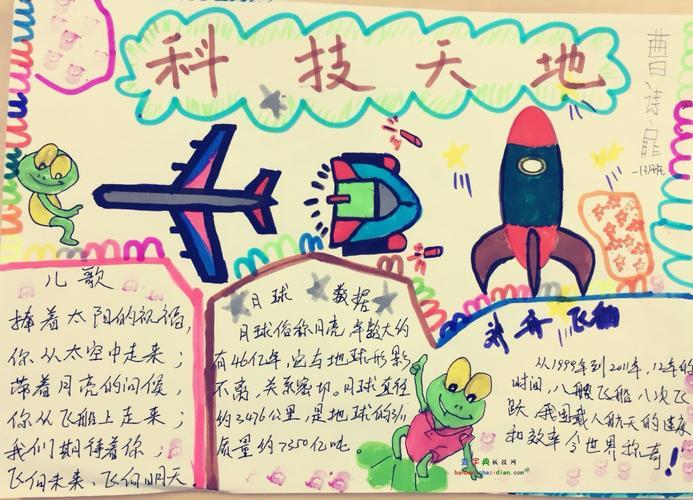 科技天地
曹诗
一(3)班
儿歌
捧着太阳的祝福,
你从太空中走来;
带着月亮的问候,
你从飞船上走来;
我们期待着你;
飞向未来、飞向明天
月球 数据
月球俗称月亮年龄大约
有46亿年,它与地球形影
不离,关系密切。月球直径
约3476公里,是地球的3/11
质量约7350亿吨。
神舟飞船
从1999年到2011年,12年的
时间,八艘飞船八次飞
跃,我国载人航天的速度
和效率令世界称奇!
查字典板报网
banbao.chazidian.com